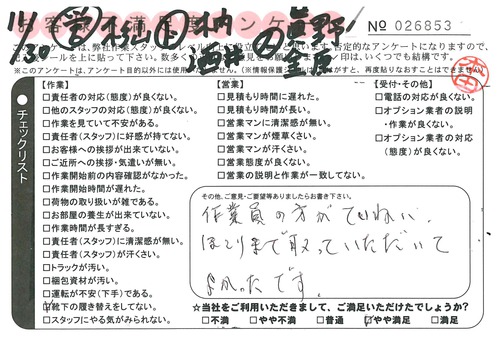 お客様不満足度アンケート
11/30
No 026853
このアンケートは、弊社作業スタッフのレベル向上に役立
否定的なアンケートになりますので、
シールを上に貼って下さい。
印は、いくつでも結構です。
※このアンケートは、アンケート目的以外には使用
再度貼りなおすことはできません。
チェックリスト
【作業】
□責任者の対応(態度)が良くない。
□他のスタッフの対応(態度)が良くない。
□作業を見ていて不安がある。
□責任者(スタッフ)に好感が持てない。
□お客様への挨拶が出来ていない。
□ご近所への挨拶・気遣いが無い。
□作業開始前の内容確認がなかった。
□作業開始時間が遅れた。
□荷物の取り扱いが雑である。
□お部屋の養生が出来ていない。
□作業時間が長すぎる。
□責任者(スタッフ)に清潔感が無い。
□責任者(スタッフ)が汗くさい。
□トラックが汚い。
□梱包資材が汚い。
□運転が不安(下手)である。
□靴下の履き替えをしてない。
□スタッフにやる気がみられない。
【営業】
□見積もり時間に遅れた。
□見積もり時間が長い。
□営業マンに清潔感が無い。
□営業マンが煙草くさい。
□営業マンが汗くさい。
□営業態度が良くない。
□営業の説明と作業が一致してない。
【受付・その他】
□電話の対応が良くない。
□オプション業者の説明
・作業が良くない。
□オプション業者の対応
(態度)が良くない。
その他、ご意見・ご要望等ありましたらお書き下さい。
作業員の方がていねい、
ほこりまで取っていただいて
よかったです。
☆当社をご利用いただきまして、ご満足いただけたでしょうか?
□不満 □やや不満 □普通 □やや満足 □満足